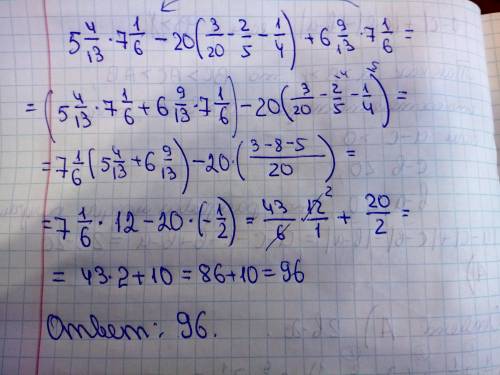 5 4/13 · 7 1/6 − 20(3/20 − 2/5 − 1/4) + 6 9/13 · 7 1/6 =
= (5 4/13 · 7 1/6 + 6 9/13 · 7 1/6) − 20(3/20 − 2/5 ⁴ − 1/4 ⁵) =
= 7 1/6 (5 4/13 + 6 9/13) − 20 · (3−8−5/20) =
= 7 1/6 · 12 − 20 · (−1/2) = 43/6 · 12/1 ² + 20/2 =
= 43·2+10 = 86+10 = 96
Ответ: 96.